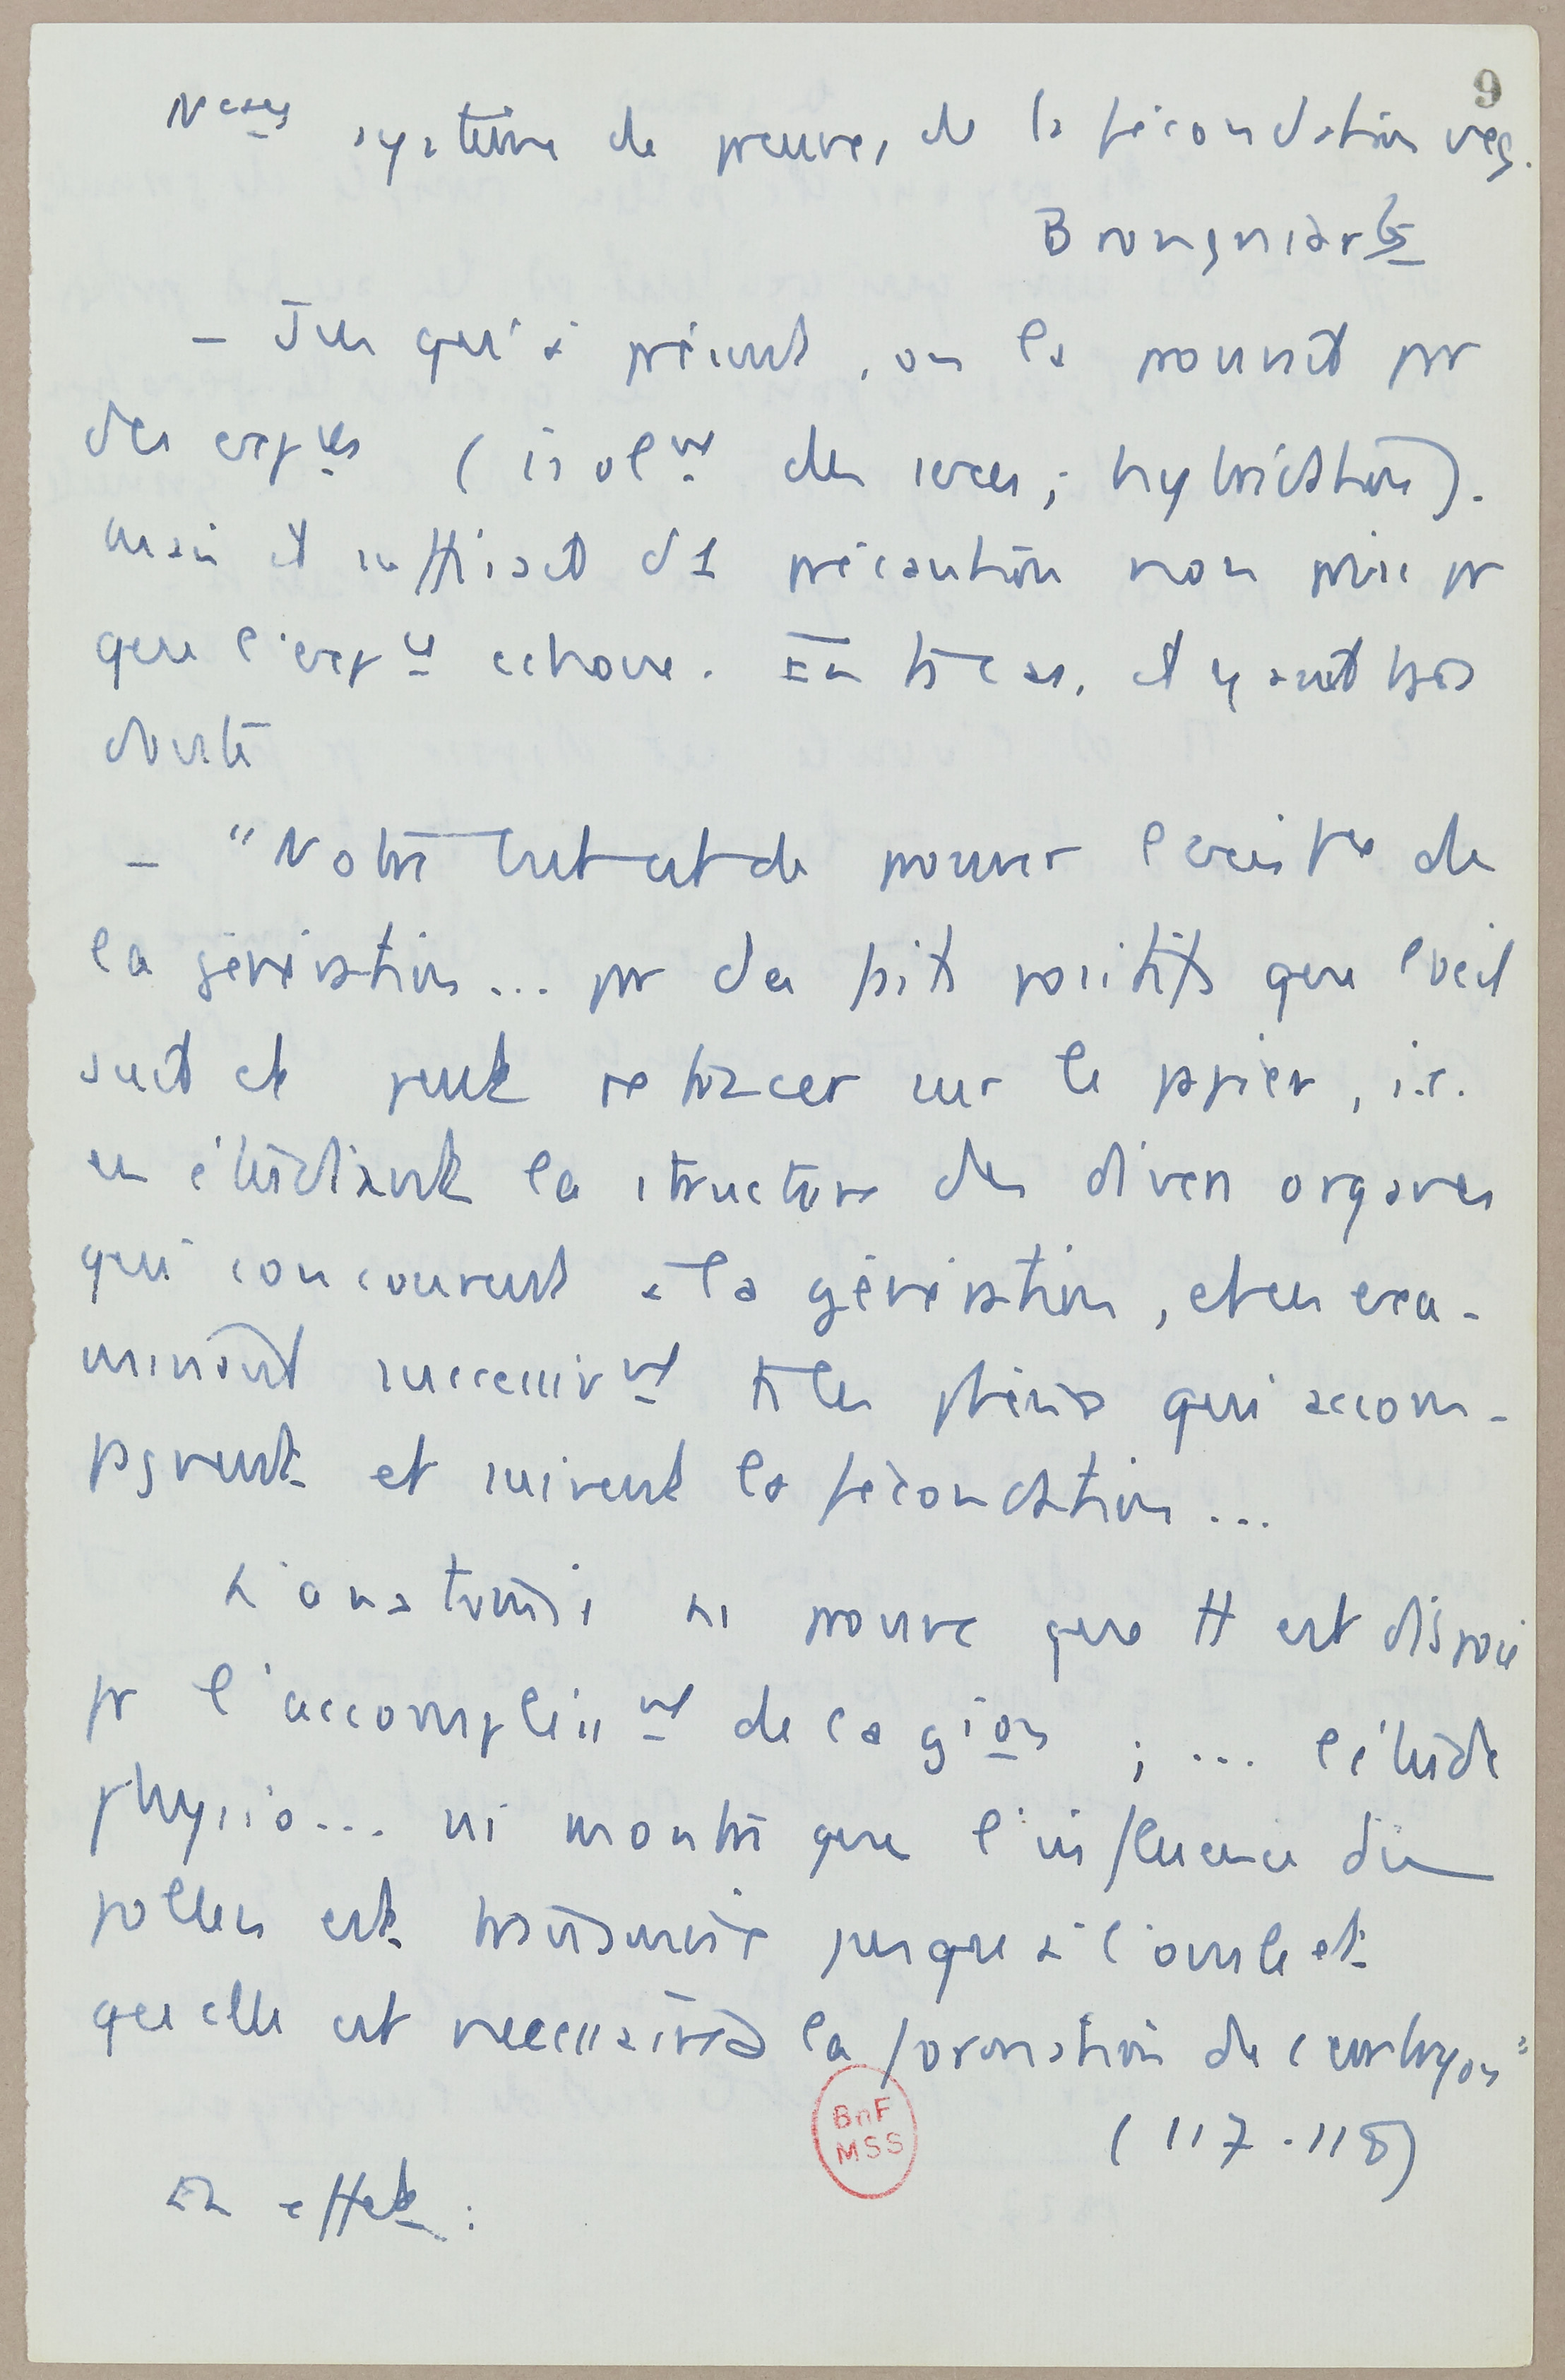 9
Neaux système de preuves de la fécondation veg.
Brongniart
– Jusqu'à présent, on la prouvait pr
des expces (isolmt des sexes ; hybridation).
mais il suffisait d'1 précaution non prise pr
que l'expce echoue. En ts cas, il y avait tjs
doute
– "Notre but est de prouver l'existce de
la génération... pr des faits positifs que l'oeil
suit et peut retracer sur le papier, i.e.
en étudiant la structure des divers organes
qui concourent à la génération, et en exa-
minant successivmt ts les phéna qui accom-
pagnent et suivent la fécondation...
L'anatomie ns prouve que tt est disposé
pr l'accomplissmt de la gion ; ... l'étude
physio... ns montre que l'influence du
pollen est transmise jusqu'à l'ovule et
qu'elle est necessaire à la formation de l'embryon"
(117-118)
BnF
MSS
En effet :